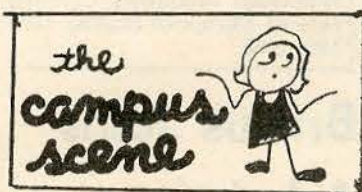 the
campus
scene